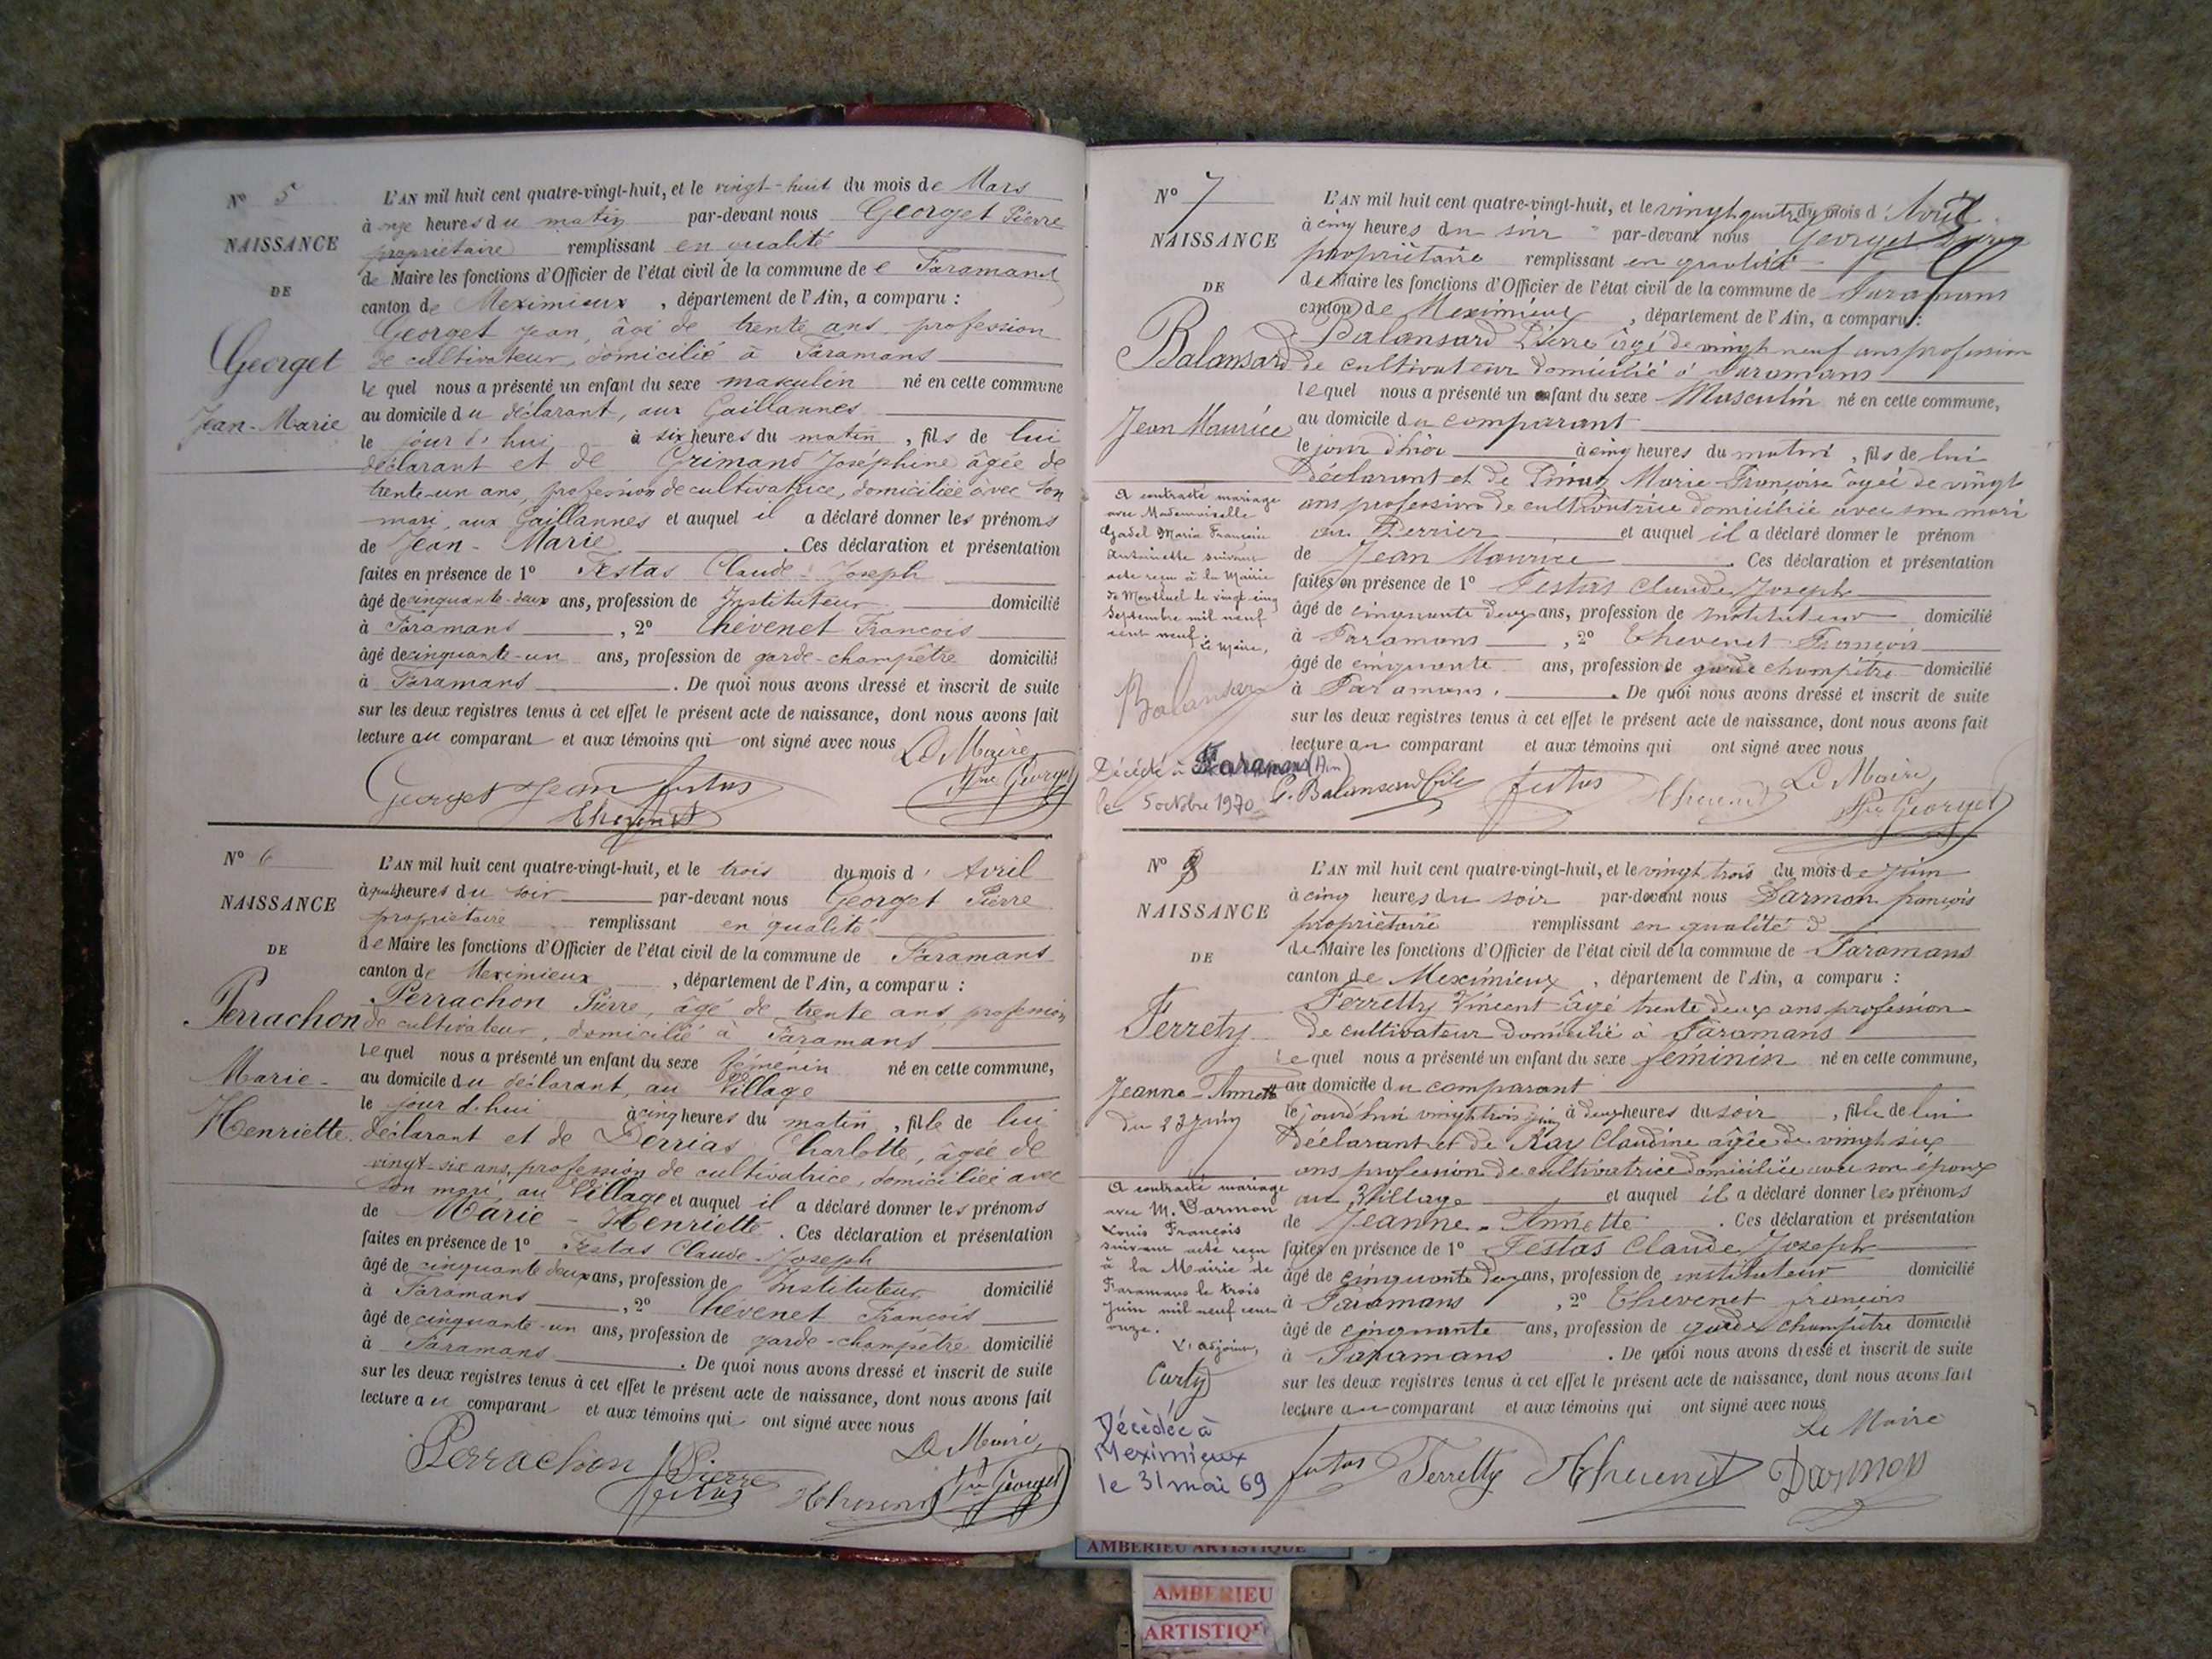 N° 5
NAISSANCE
DE
Georget
Jean-Marie
L'AN mil huit cent quatre-vingt-huit, et le vingt-huit du mois de Mars
à onze heures du matin par-devant nous Georget Pierre
propriétaire remplissant en qualité
de Maire les fonctions d'Officier de l'état civil de la commune de Faramans
canton de Meximieux, département de l'Ain, a comparu :
Georget Jean, âgé de trente ans profession
de cultivateur, domicilié à Faramans
Lequel nous a présenté un enfant du sexe masculin né en cette commune
au domicile du déclarant, aux Gaillannes
le jour d'hui à six heures du matin, fils de lui
déclarant et de Grimand Joséphine âgée de
trente-un ans, profession de cultivatrice, domiciliée avec son
mari, aux Gaillannes et auquel il a déclaré donner les prénoms
de Jean-Marie. Ces déclaration et présentation
faites en présence de 1° Festas Claude-Joseph
âgé de cinquante-deux ans, profession de Instituteur domicilié
à Faramans, 2° Chévenet François
âgé de cinquante-un ans, profession de garde-champêtre domicilié
à Faramans. De quoi nous avons dressé et inscrit de suite
sur les deux registres tenus à cet effet le présent acte de naissance, dont nous avons fait
lecture au comparant et aux témoins qui ont signé avec nous
Le Maire
Georget Jean festas Pre Georget
N° 6
NAISSANCE
DE
Perrachon
Marie-
Henriette
L'AN mil huit cent quatre-vingt-huit, et le trois du mois d'Avril
à heures du soir par-devant nous Georget Pierre
propriétaire remplissant en qualité
de Maire les fonctions d'Officier de l'état civil de la commune de Faramans
canton de Meximieux, département de l'Ain, a comparu :
Perrachon Pierre, âgé de trente ans, profession
de cultivateur, domicilié à Faramans
Lequel nous a présenté un enfant du sexe féménin né en cette commune,
au domicile du déclarant, au Village
le jour d'hui à cinq heures du matin, fille de lui
déclarant et de Derrias Charlotte, âgée de
vingt-six ans, profession de cultivatrice, domiciliée avec
son mari, au Village et auquel il a déclaré donner les prénoms
de Marie-Henriette. Ces déclaration et présentation
faites en présence de 1° Festas Claude-Joseph
âgé de cinquante deux ans, profession de Instituteur domicilié
à Faramans, 2° Chévenet François
âgé de cinquante-un ans, profession de garde-champêtre domicilié
à Faramans. De quoi nous avons dressé et inscrit de suite
sur les deux registres tenus à cet effet le présent acte de naissance, dont nous avons fait
lecture au comparant et aux témoins qui ont signé avec nous
Le Maire
Perrachon Pierre
festas Pre Georget
N° 7
NAISSANCE
DE
Balansard
Jean Maurice
A contracté mariage
avec Mademoiselle
Gadel Maria Francine
Antoinette suivant
acte reçu à la Mairie
de Montluel le vingt cinq
septembre mil neuf
cent neuf.
Le Maire,
Décédé à Faramans (Ain)
le 5 octobre 1970
L'AN mil huit cent quatre-vingt-huit, et le vingt quatre du mois d'Avril
à cinq heures du soir par-devant nous Georget Pierre
propriétaire remplissant en qualité
de Maire les fonctions d'Officier de l'état civil de la commune de Faramans
canton de Meximieux, département de l'Ain, a comparu :
Balansard Pierre âgé de vingt neuf ans profession
de cultivateur domicilié à Faramans
Lequel nous a présenté un enfant du sexe Masculin né en cette commune,
au domicile du comparant
le jour d'hier à cinq heures du matin, fils de lui
Déclarant et de Marie Françoise âgée de vingt
ans profession de cultivatrice domiciliée avec son mari
au Perrier et auquel il a déclaré donner le prénom
de Jean Maurice. Ces déclaration et présentation
faites en présence de 1° Festas Claude Joseph
âgé de cinquante deux ans, profession de instituteur domicilié
à Faramans, 2° Chevenet François
âgé de cinquante ans, profession de garde champêtre domicilié
à Faramans. De quoi nous avons dressé et inscrit de suite
sur les deux registres tenus à cet effet le présent acte de naissance, dont nous avons fait
lecture au comparant et aux témoins qui ont signé avec nous
Le Maire
P. Balansard fils festas Pre Georget
N° 8
NAISSANCE
DE
Ferrety
Jeanne-Annette
du 23 juin
A contracté mariage
avec M. Darmon
Louis François
suivant acte reçu
à la Mairie de
Faramans le trois
juin mil neuf cent
onze.
L'adjoint,
Curty
Décédée à
Meximieux
le 31 mai 69
L'AN mil huit cent quatre-vingt-huit, et le vingt trois du mois de juin
à cinq heures du soir par-devant nous Darmon françois
propriétaire remplissant en qualité d
de Maire les fonctions d'Officier de l'état civil de la commune de Faramans
canton de Meximieux, département de l'Ain, a comparu :
Ferretty Vincent âgé trente deux ans profession
de cultivateur domicilié à Faramans
Lequel nous a présenté un enfant du sexe féminin né en cette commune,
au domicile du comparant
le jourd'hui vingt trois juin à deux heures du soir, fille de lui
Déclarant et de Ray Claudine âgée de vingt six
ans profession de cultivatrice domiciliée avec son époux
au Village et auquel il a déclaré donner les prénoms
de Jeanne-Annette. Ces déclaration et présentation
faites en présence de 1° Festas Claude Joseph
âgé de cinquante deux ans, profession de instituteur domicilié
à Faramans, 2° Chevenet françois
âgé de cinquante ans, profession de garde champêtre domicilié
à Faramans. De quoi nous avons dressé et inscrit de suite
sur les deux registres tenus à cet effet le présent acte de naissance, dont nous avons fait
lecture au comparant et aux témoins qui ont signé avec nous
Le Maire
festas Ferretty Chevenet Darmon
AMBERIEU ARTISTIQUE
AMBERIEU
ARTISTIQ